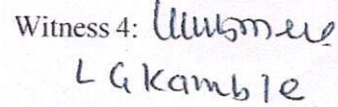 Witness 4:
L G Kamble